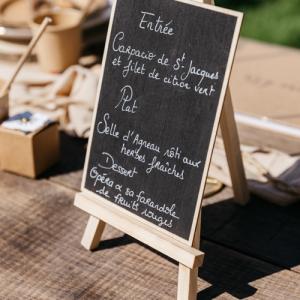 Entrée
Carpacio de St. Jacques
et filet de citron vert
Plat
Selle d'Agneau rôti aux
herbes fraîches
Dessert
Opéra & sa farandole
de fruits rouges